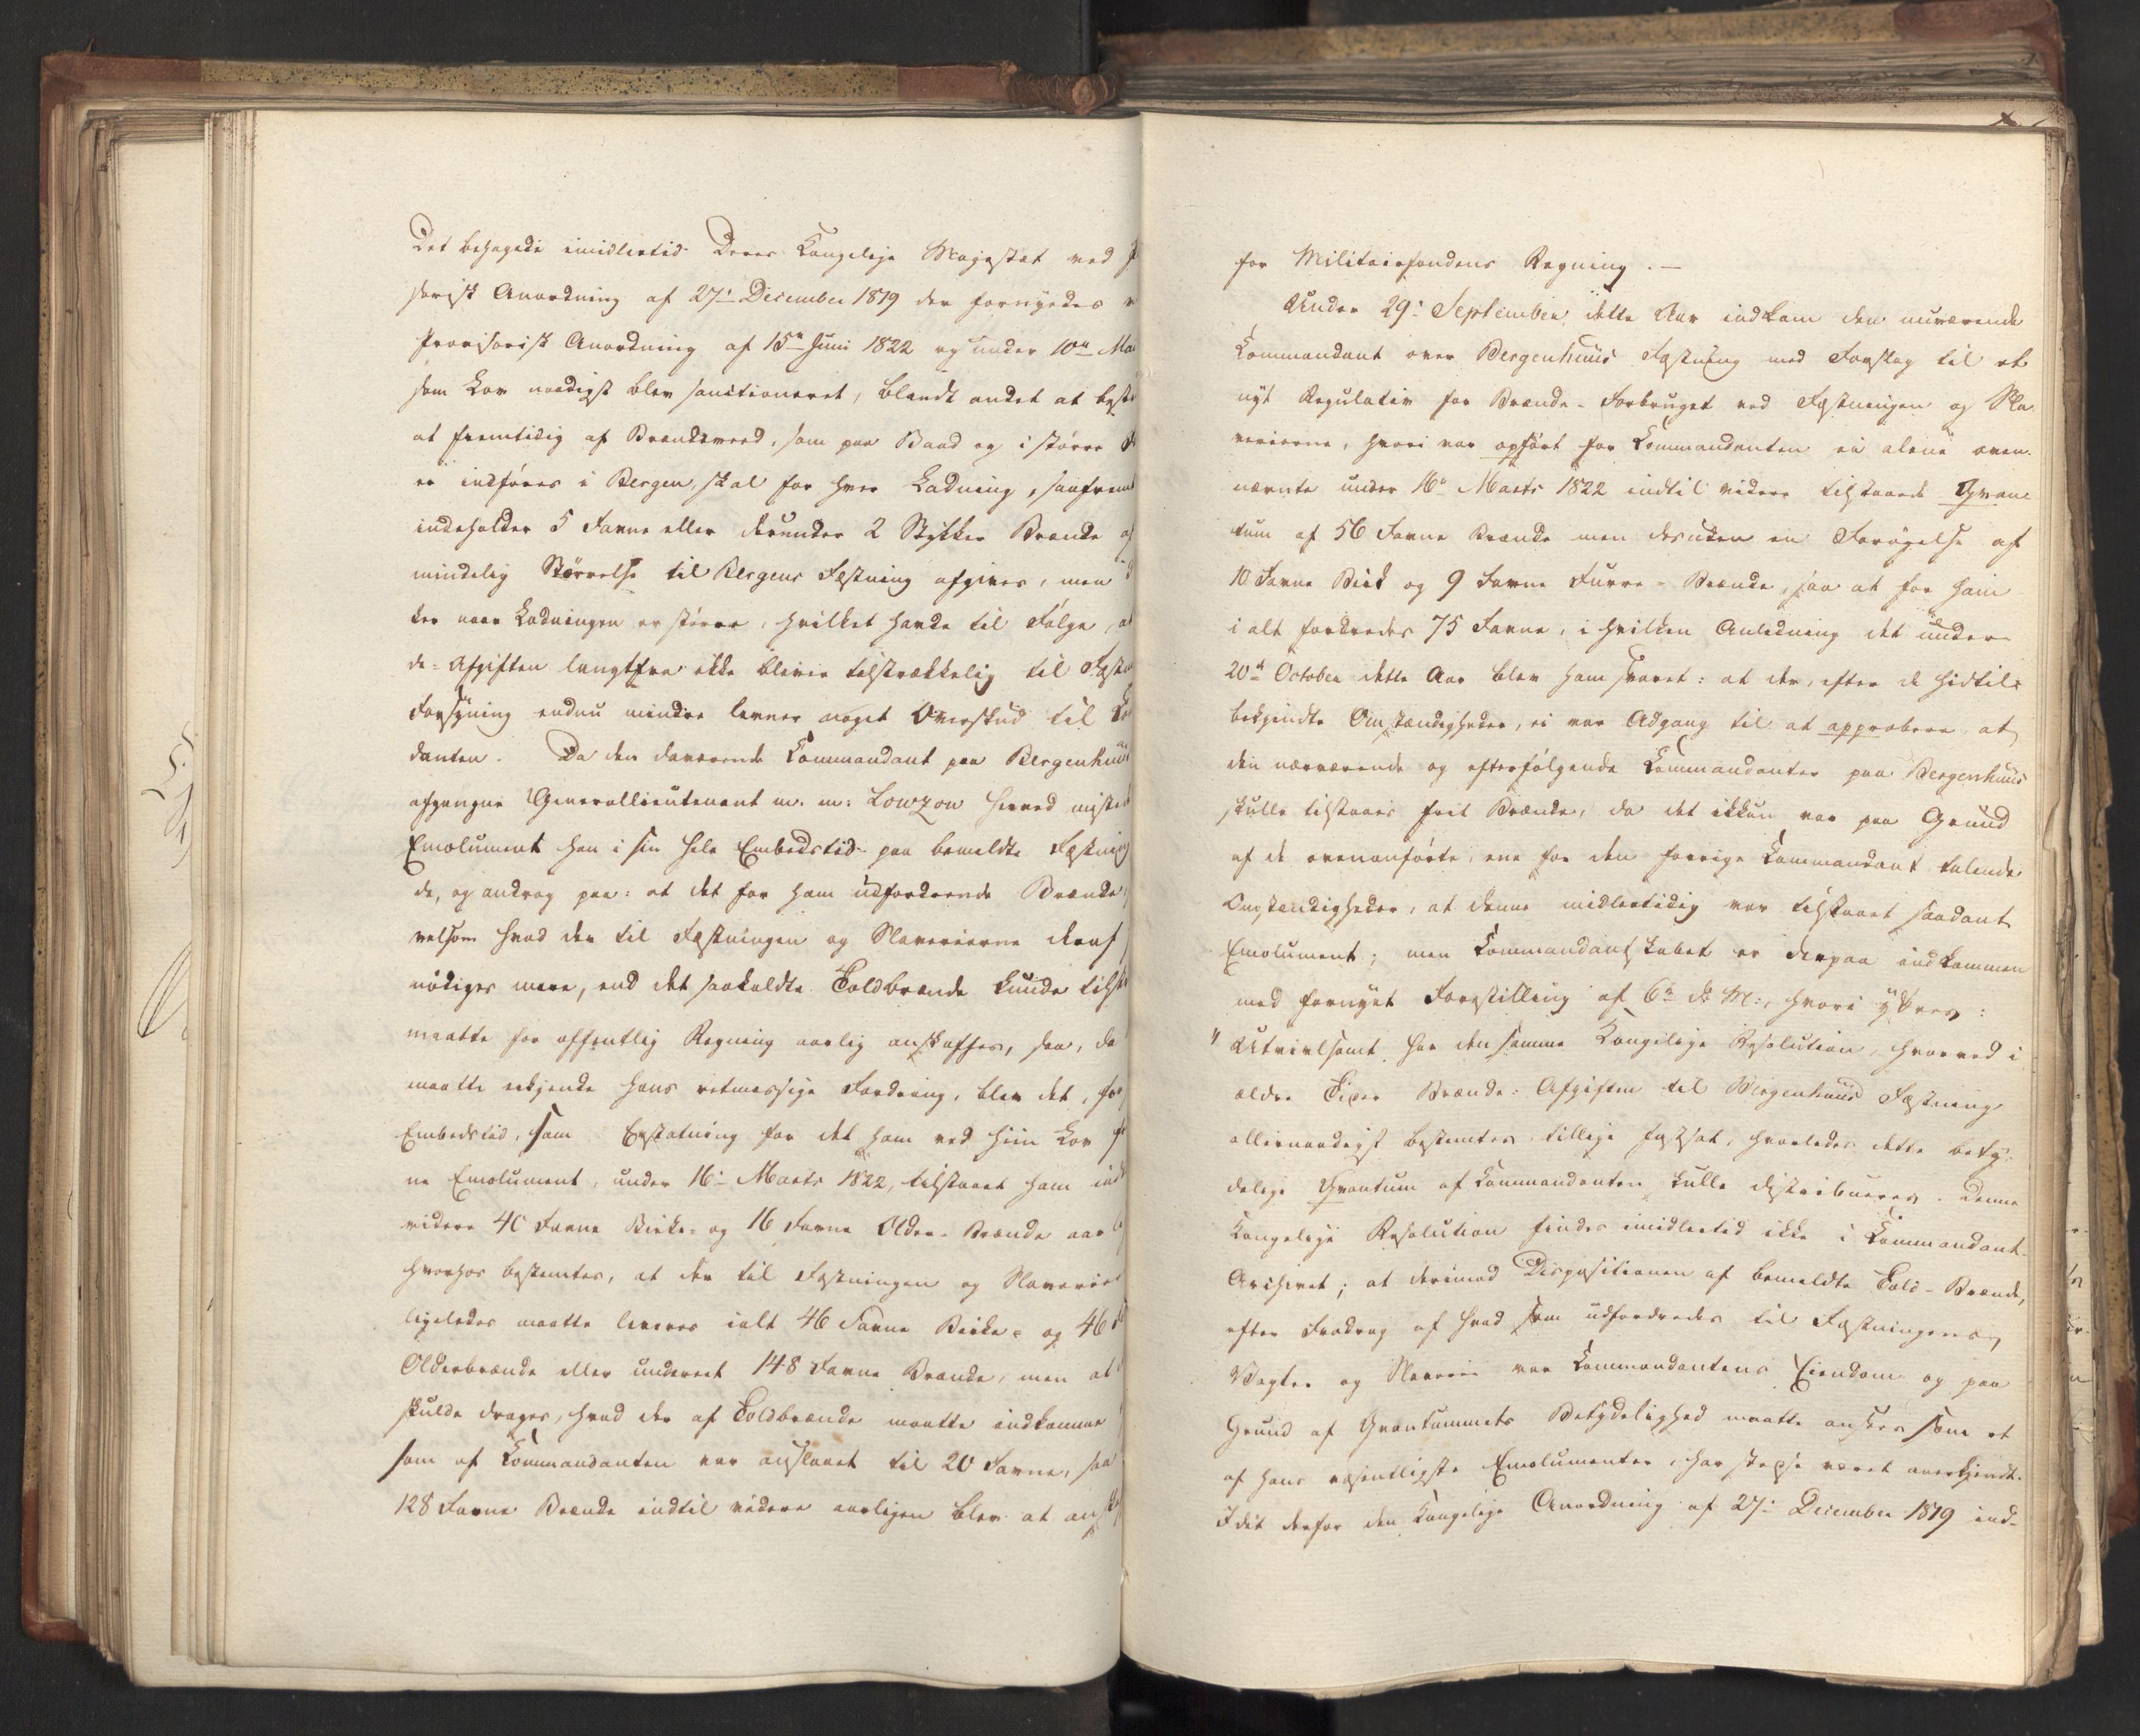 Det behagede imidlertid Deres Kongelige Majestæt ved
sorisk Anordning af 27de December 1819 der fornyedes
Provisorisk Anordning af 15de Juni 1822 og under 10de Ma
som Lov naadigst blev sanctioneret, blandt andet at
at fremtidig af Brændeveed, som paa Baad og i større
ei indføres i Bergen, skal for hver Ladning, saafremt
indeholder 5 Favne eller derunder 2 Stykker Brænde
mindelig Størrelse til Bergens Fæstning afgives, men
ker naar Ladningen er større, hvilket havde til Følge, at
de-Afgiften langtfra ikke bliver tilstrækkelig til
Forsyning endnu mindre levner noget Overskud til
danten. Da den daværende Commandant paa Bergenhuus
afgangne Generallieutenant m. m. Lowzow herved
Emolument han i sin hele Embedstid paa bemeldte Fæstning
de, og androg paa: at det for ham udfordrende Brænde
velsom hvad der til Fæstningen og Slaverierne deraf
nødiges mere, end det saakaldte Toldbrænde kunde
maatte for offentlig Regning aarlig anskaffes, saa, da
maatte erkjende hans retmessige Fordring, blev det, for
Embedstid, som Erstatning for det ham ved hiin Lov
ne Emolument, under 16de Marts 1822, tilstaaet ham
videre 40 Favne Birke- og 16 Favne Older-Brænde
hvorhos bestemtes, at der til Fæstningen og
ligeledes maatte leveres ialt 46 Favne Birke- og 46
Olderbrænde eller underet 148 Favne Brænde, men at
skulde drages, hvad der af Toldbrænde maatte indkomme
som af Commandanten var anslaaet til 20 Favne, saa
128 Favne Brænde indtil videre aarligen blev at
for Militairfondens Regning. —
Under 29de September dette Aar indkom den nuværende
Commandant over Bergenhuus Fæstning med Forslag til et
nyt Regulativ for Brænde-Forbruget ved Fæstningen og Sla
verierne, hvori var opført for Commandanten ei alene oven
nævnte under 16de Marts 1822 indtil videre tilstaaede Qvan
tum af 56 Favne Brænde men desuden en Forøgelse af
10 Favne Birk og 9 Favne Furre-Brænde, saa at for ham
i alt fordredes 75 Favne, i hvilken Anledning det under
20de October dette Aar blev ham svaret: at der, efter de hidtil
bekjendte Omstændigheder, ei var Adgang til at approbere, at
den nærværende og efterfølgende Commandanter paa Bergenhuus
skulle tilstaaes frit Brænde, da det ikkun var paa Grund
af de ovenanførte, ene for den forrige Commandant talende
Omstændigheder, at denne midlertidig var tilstaaet saadant
Emolument; men Commandantskabet er derpaa indkommen
med fornyet Forestilling af 6te d: M:, hvori yttres:
" Utvivlsomt har den samme Kongelige Resolution, hvorved i
ældre Tider Brænde-Afgiften til Bergenhuus Fæstning
allernaadigst bestemtes, tillige fastsat, hvorledes dette bety-
delige Qvantum af Commandanten skulle distribueres. Denne
Kongelige Resolution findes imidlertid ikke i Commandant-
Archivet; at derimod Dispositionen af bemeldte Told-Brænde,
efter Fradrag af hvad som udfordredes til Fæstningens
Vagter og Slaverie var Commandantens Eiendom og paa
Grund af Qvantummets Betydelighed maatte ansees som et
af hans væsentligste Emolumenter, har stedse været anerkjendt.
Idet derfor den Kongelige Anordning af 27de December 1819 ind-